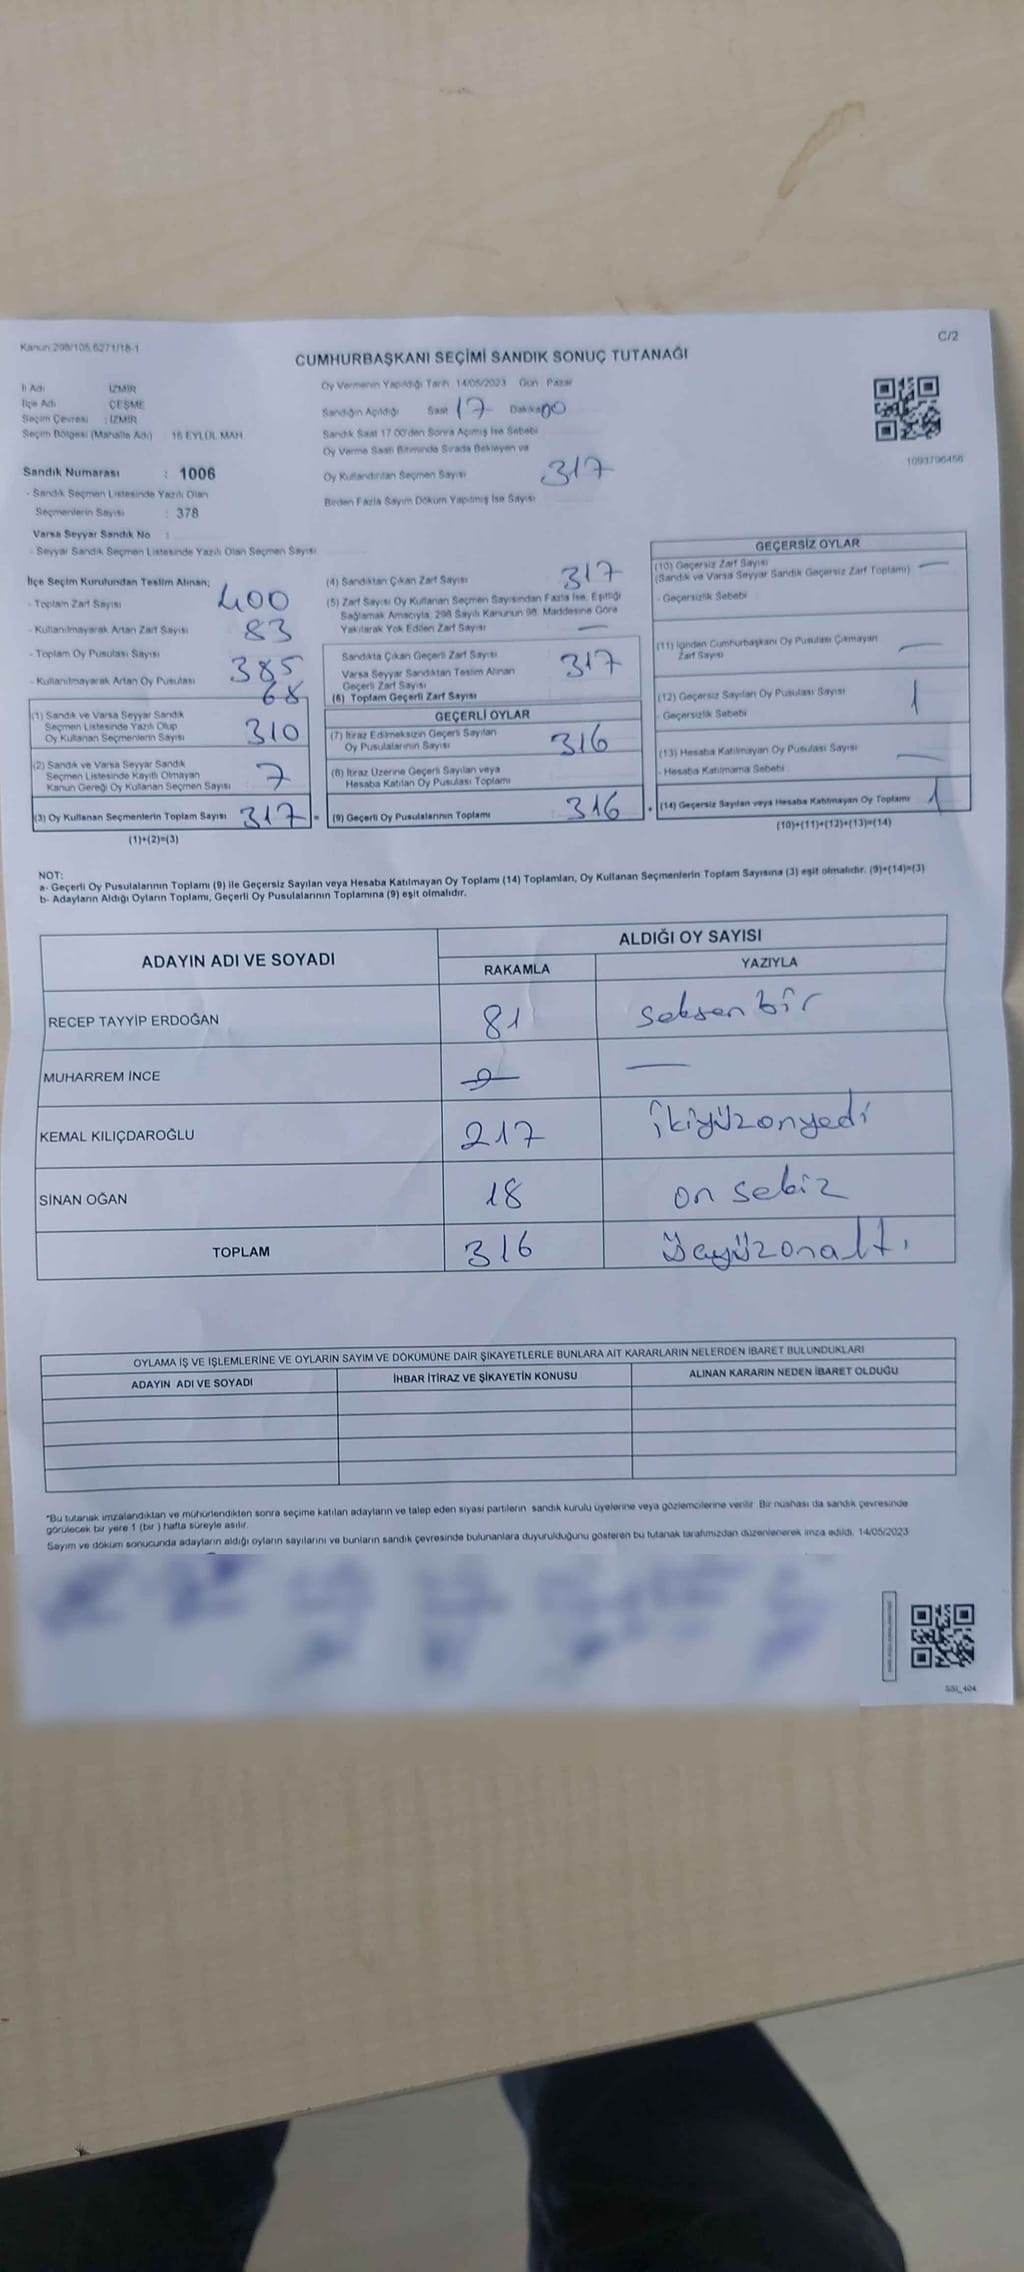 Kanun 298/105 6271/18-1
C/2
CUMHURBAŞKANI SEÇİMİ SANDIK SONUÇ TUTANAĞI
İl Adı : İZMİR
İlçe Adı : ÇEŞME
Seçim Çevresi : İZMİR
Seçim Bölgesi (Mahalle Adı) : 16 EYLÜL MAH.
Oy Vermenin Yapıldığı Tarih 14/05/2023 Gün Pazar
Sandığın Açıldığı Saat 17 Dakika 00
Sandık Saat 17.00'den Sonra Açımış İse Sebebi
Oy Verme Saati Bitiminde Sırada Bekleyen ve
Oy Kullandırılan Seçmen Sayısı 317
Birden Fazla Sayım Döküm Yapılmış İse Sayısı
1093796456
Sandık Numarası : 1006
- Sandık Seçmen Listesinde Yazılı Olan
Seçmenlerin Sayısı : 378
Varsa Seyyar Sandık No :
- Seyyar Sandık Seçmen Listesinde Yazılı Olan Seçmen Sayısı
İlçe Seçim Kurulundan Teslim Alınan;
- Toplam Zarf Sayısı 400
- Kullanılmayarak Artan Zarf Sayısı 83
- Toplam Oy Pusulası Sayısı 385
- Kullanılmayarak Artan Oy Pusulası 68
(1) Sandık ve Varsa Seyyar Sandık
Seçmen Listesinde Yazılı Olup
Oy Kullanan Seçmenlerin Sayısı 310
(2) Sandık ve Varsa Seyyar Sandık
Seçmen Listesinde Kayıtlı Olmayan
Kanun Gereği Oy Kullanan Seçmen Sayısı 7
(3) Oy Kullanan Seçmenlerin Toplam Sayısı 317 =
(1)+(2)=(3)
(4) Sandıktan Çıkan Zarf Sayısı 317
(5) Zarf Sayısı Oy Kullanan Seçmen Sayısından Fazla İse, Eşitliği
Sağlamak Amacıyla, 298 Sayılı Kanunun 98. Maddesine Göre
Yakılarak Yok Edilen Zarf Sayısı —
Sandıkta Çıkan Geçerli Zarf Sayısı 317
Varsa Seyyar Sandıktan Teslim Alınan
Geçerli Zarf Sayısı
(6) Toplam Geçerli Zarf Sayısı
GEÇERLİ OYLAR
(7) İtiraz Edilmeksizin Geçerli Sayılan
Oy Pusulalarının Sayısı 316
(8) İtiraz Üzerine Geçerli Sayılan veya
Hesaba Katılan Oy Pusulası Toplamı
(9) Geçerli Oy Pusulalarının Toplamı 316 +
GEÇERSİZ OYLAR
(10) Geçersiz Zarf Sayısı
(Sandık ve Varsa Seyyar Sandık Geçersiz Zarf Toplamı) —
- Geçersizlik Sebebi
(11) İçinden Cumhurbaşkanı Oy Pusulası Çıkmayan
Zarf Sayısı —
(12) Geçersiz Sayılan Oy Pusulası Sayısı 1
- Geçersizlik Sebebi
(13) Hesaba Katılmayan Oy Pusulası Sayısı —
- Hesaba Katılmama Sebebi
(14) Geçersiz Sayılan veya Hesaba Katılmayan Oy Toplamı 1
(10)+(11)+(12)+(13)=(14)
NOT:
a- Geçerli Oy Pusulalarının Toplamı (9) ile Geçersiz Sayılan veya Hesaba Katılmayan Oy Toplamı (14) Toplamları, Oy Kullanan Seçmenlerin Toplam Sayısına (3) eşit olmalıdır. (9)+(14)=(3)
b- Adayların Aldığı Oyların Toplamı, Geçerli Oy Pusulalarının Toplamına (9) eşit olmalıdır.
ADAYIN ADI VE SOYADI ALDIĞI OY SAYISI
RAKAMLA YAZIYLA
RECEP TAYYİP ERDOĞAN 81 seksen bir
MUHARREM İNCE —
KEMAL KILIÇDAROĞLU 217 ikiyüzonyedi
SİNAN OĞAN 18 on sekiz
TOPLAM 316 üçyüzonaltı
OYLAMA İŞ VE İŞLEMLERİNE VE OYLARIN SAYIM VE DÖKÜMÜNE DAİR ŞİKAYETLERLE BUNLARA AİT KARARLARIN NELERDEN İBARET BULUNDUKLARI
ADAYIN ADI VE SOYADI İHBAR İTİRAZ VE ŞİKAYETİN KONUSU ALINAN KARARIN NEDEN İBARET OLDUĞU
*Bu tutanak imzalandıktan ve mühürlendikten sonra seçime katılan adayların ve talep eden siyasi partilerin sandık kurulu üyelerine veya gözlemcilerine verilir. Bir nüshası da sandık çevresinde
görülecek bir yere 1 (bir) hafta süreyle asılır.
Sayım ve döküm sonucunda adayların aldığı oyların sayılarını ve bunların sandık çevresinde bulunanlara duyurulduğunu gösteren bu tutanak tarafımızdan düzenlenerek imza edildi. 14/05/2023